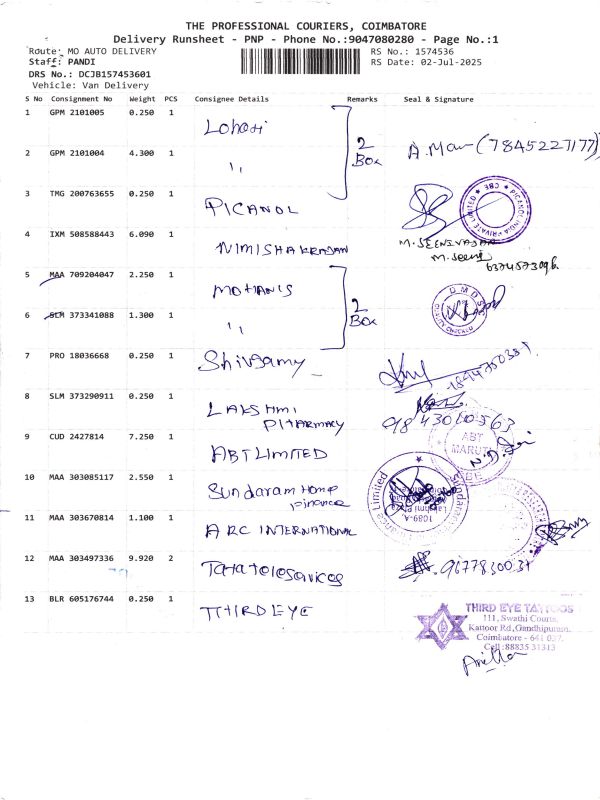 THE PROFESSIONAL COURIERS, COIMBATORE
Delivery Runsheet - PNP - Phone No.:9047080280 - Page No.:1
Route: MO AUTO DELIVERY RS No.: 1574536
Staff: PANDI RS Date: 02-Jul-2025
DRS No.: DCJB157453601
Vehicle: Van Delivery
S No Consignment No Weight PCS Consignee Details Remarks Seal & Signature
1 GPM 2101005 0.250 1
2 Box
2 GPM 2101004 4.300 1 ,, A.Man (7845227177)
3 TMG 200763655 0.250 1 PICANOL
PICANOL INDIA PRIVATE LIMITED ★ CBE ★
4 IXM 508588443 6.090 1 M. SEENIVASAN
M. Seeni
5 MAA 709204047 2.250 1
2 Box
6 SLM 373341088 1.300 1 ,,
7 PRO 18036668 0.250 1
8 SLM 373290911 0.250 1 LAKSHMI PHARMACY 9843010563
9 CUD 2427814 7.250 1 ABT LIMITED
ABT MARUTI
10 MAA 303085117 2.550 1 Sundaram Home Finance
11 MAA 303670814 1.100 1 ARC INTERNATIONAL
12 MAA 303497336 9.920 2
13 BLR 605176744 0.250 1 THIRD EYE
THIRD EYE TATTOOS
111, Swathi Courts,
Kattoor Rd, Gandhipuram,
Coimbatore - 641 037.
Cell :88835 31313